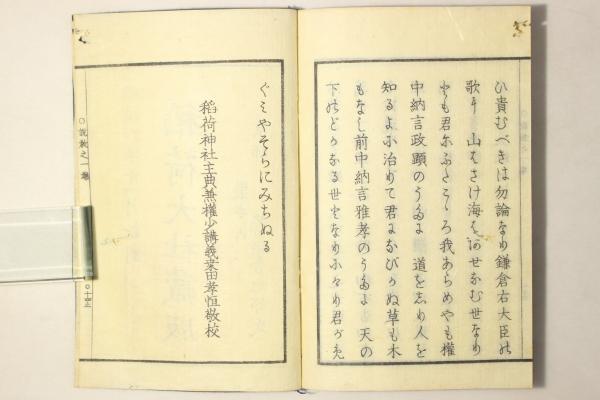 ひ貴むべきは勿論なり鎌倉右大臣の
歌に　山はさけ海はあせなむ世なり
とも君にふたこゝろ我あらめやも權
中納言政顕のうたに　道をしめ人を
知るよに治めて君になびかぬ草も木
もなし前中納言雅孝のうたに　天の
下のどかなる世となりにけり君がめ
ぐミやそらにみちぬる
稻荷神社主典兼權少講義桒田孝恒敬校
○説教之一巻
○十四